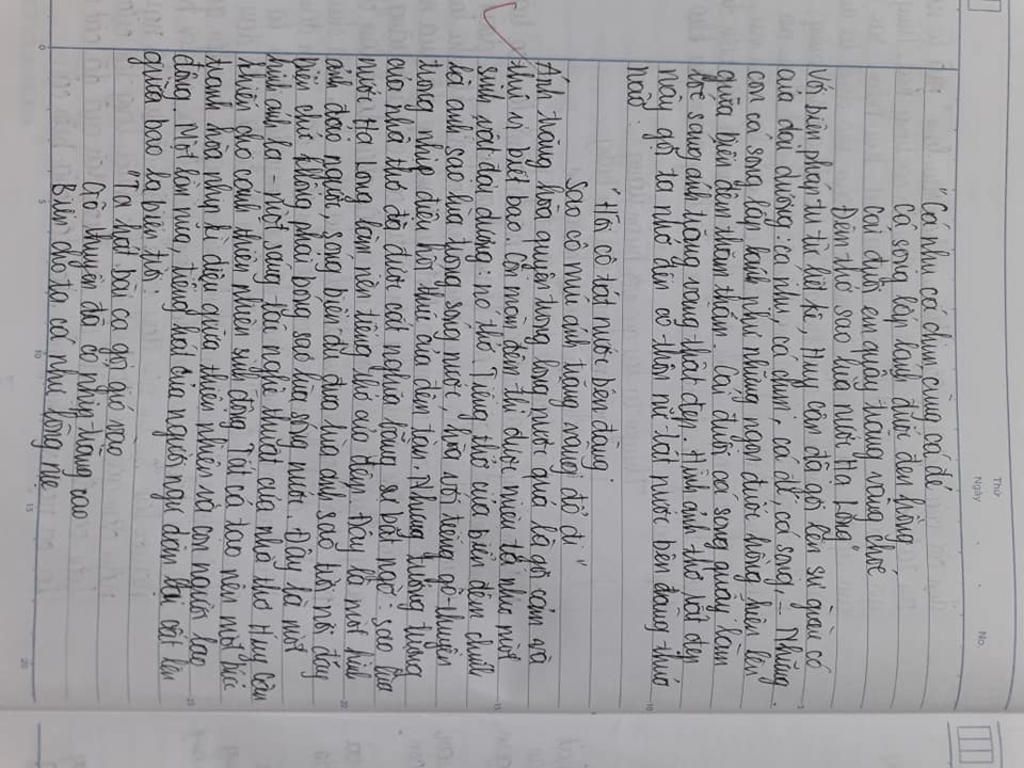 Thứ
Ngày
No.
"Cá nhụ cá chim cùng cá đé
Cá song lấp lánh đuốc đen hồng
Cái đuôi em quẫy trăng vàng choé
Đêm thở sao lùa nước Hạ Long"
Với biện pháp tu từ liệt kê, Huy Cận đã gợi lên sự giàu có
của đại dương: cá nhụ, cá chim, cá đé, cá song,... Những
con cá song lấp lánh như những ngọn đuốc hồng hiện lên
giữa biển đêm thăm thẳm. Cái đuôi cá song quẫy làm
toé sáng ánh trăng vàng thật đẹp. Hình ảnh thơ rất đẹp
này gợi ta nhớ đến cô thôn nữ tát nước bên đàng thuở
nào:
"Hỡi cô tát nước bên đàng
Sao cô múc ánh trăng vàng đổ đi"
Ánh trăng hòa quyện trong làng nước quả là gợi cảm và
thú vị biết bao. Còn màn đêm thì được miêu tả như một
sinh vật đại dương: nó thở. Tiếng thở của biển đêm chính
là ánh sao lùa trong sóng nước, hòa với tiếng gõ thuyền
trong nhịp điệu hơi thở của đêm tàn. Nhưng tưởng tượng
của nhà thơ đã được cắt nghĩa bằng sự bất ngờ: sao lùa
nước Hạ Long làm nên tiếng thở của đêm. Đây là một hình
ảnh đảo ngược, sóng biển đu đưa lùa ánh sao trời nơi đáy
biển chứ không phải bóng sao lùa sóng nước. Đây là một
hình ảnh lạ - một sáng tạo nghệ thuật của nhà thơ Huy Cận
khiến cho cảnh thiên nhiên sinh động. Tất cả tạo nên một bức
tranh hòa nhịp kì diệu giữa thiên nhiên và con người lao
động. Một lần nữa, tiếng hát của người ngư dân lại cất lên
giữa bao la biển trời:
"Ta hát bài ca gọi gió vào
Gõ thuyền đã có nhịp trăng cao
Biển cho ta cá như lòng mẹ